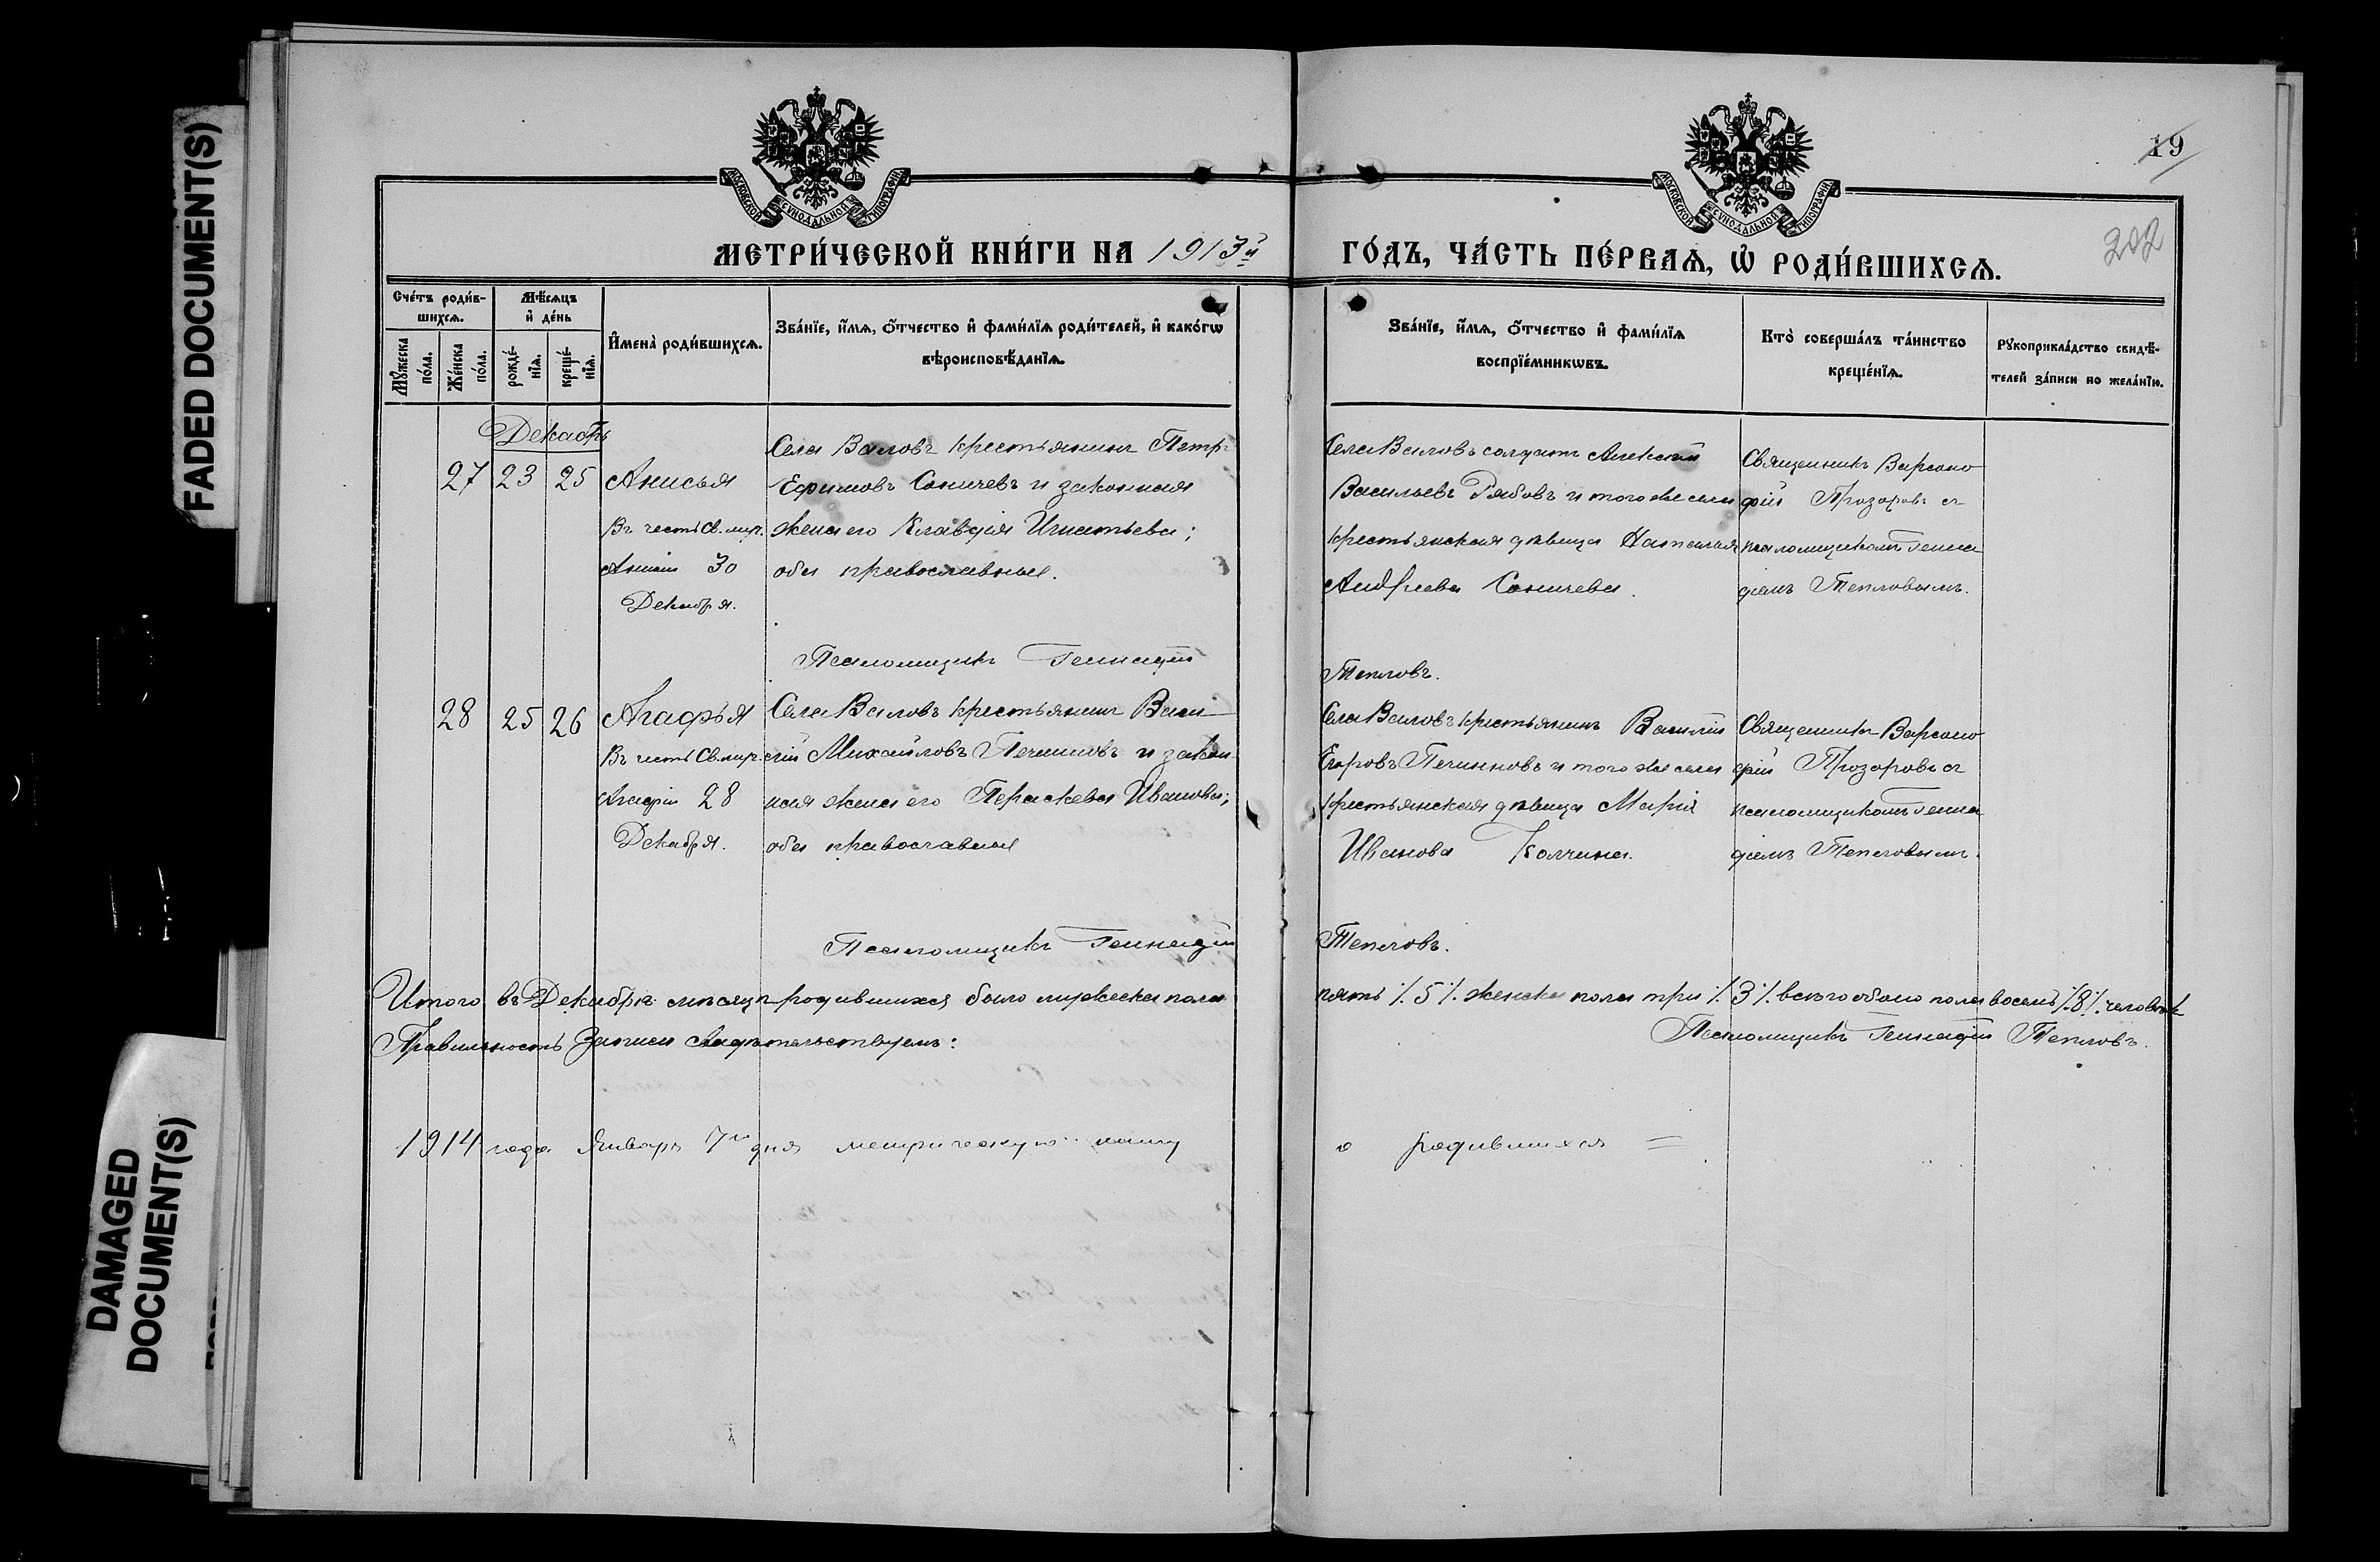 FADED DOCUMENT(S)
DAMAGED
DOCUMENT(S)
МОСКОВСКОЙ СѴНОДАЛЬНОЙ ТИПОГРАФІИ
МОСКОВСКОЙ СѴНОДАЛЬНОЙ ТИПОГРАФІИ
19
202
МЕТРИ́ЧЕСКОЙ КНИ́ГИ НА 1913й ГО́ДЪ, ЧА́СТЬ ПЕ́РВАѦ, Ѡ҆ РОДИ́ВШИХСѦ.
Сче́тъ роди́в-
шихсѧ.
Мѣ́сѧцъ
и҆ де́нь
Мꙋ́жеска
по́ла.
Же́нска
по́ла.
рожде́-
нїѧ.
креще́-
нїѧ.
И҆мена̀ роди́вшихсѧ.
Зва́нїе, и҆́мѧ, ѻ҆́тчество и҆ фами́лїѧ роди́телей, и҆ како́гѡ
вѣроисповѣ́данїѧ.
Зва́нїе, и҆́мѧ, ѻ҆́тчество и҆ фами́лїѧ
воспрїе́мникѡвъ.
Кто̀ соверша́лъ та́инство
креще́нїѧ.
Рꙋкоприкла́дство свидѣ́-
телей за́писи по жела́нїю.
Декабрь
27 23 25 Анисья
Въ честь Св. муч.
Анисіи 30
Декабря.
Села Валовъ крестьянинъ Петръ
Ефимовъ Саничевъ и законная
жена его Клавдія Игнатьева;
оба православные.
Села Валовъ солдатъ Алексѣй
Васильевъ Рябовъ и того же села
крестьянская дѣвица Наталія
Андреева Саничева.
Священникъ Варсоно
фій Прозоровъ съ
псаломщикомъ Генна
діемъ Тепловымъ.
Псаломщикъ Геннадій Тепловъ.
28 25 26 Агафья
Въ честь Св. муч.
Агафіи 28
Декабря.
Села Валовъ крестьянинъ Васи-
лій Михайловъ Печинновъ и закон-
ная жена его Параскева Иванова;
оба православные
Села Валовъ крестьянинъ Василій
Егоровъ Печинновъ и того же села
крестьянская дѣвица Марія
Иванова Колчина.
Священникъ Варсоно
фій Прозоровъ съ
псаломщикомъ Генна
діемъ Тепловымъ.
Псаломщикъ Геннадій Тепловъ.
Итого въ Декабрѣ мѣсяцѣ родившихся было мужеска пола пять ٪ 5 ٪ женска пола три ٪ 3 ٪ всего обоего пола восемь ٪ 8 ٪ человѣкъ
Правильность записи свидѣтельствуемъ: Псаломщикъ Геннадій Тепловъ.
1914 года Января 7го дня метрическую книгу о родившихся =